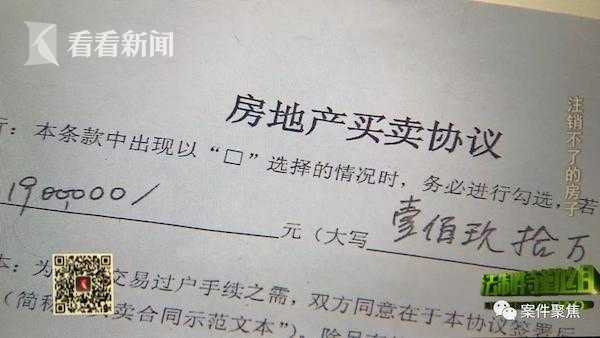 看看新闻
房地产买卖协议
行：本条款中出现以“□”选择的情况时，务必进行勾选，若
1900000/元（大写壹佰玖拾万
本：为 交易过户手续之需，双方同意在于本协议签署后
（简称 卖合同示范文本”），除另有
注销不了的房子
案件聚焦